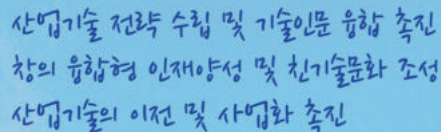 산업기술 전략 수립 및 기술인문 융합 촉진
창의 융합형 인재양성 및 친기술문화 조성
산업기술의 이전 및 사업화 촉진